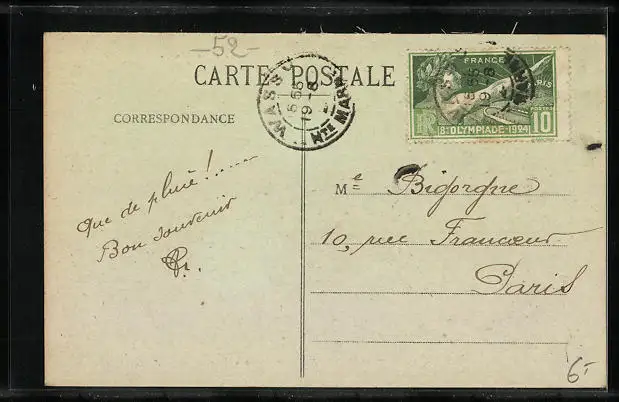 -52-
CARTE POSTALE
CORRESPONDANCE
WASSY
5 55
19-8
Hte MARNE
FRANCE
PARIS
POSTES
RF
8e OLYMPIADE-1924
10
Que de pluie!......
Bon souvenir
Me Bigorgne
10, rue Francœur
Paris
6-